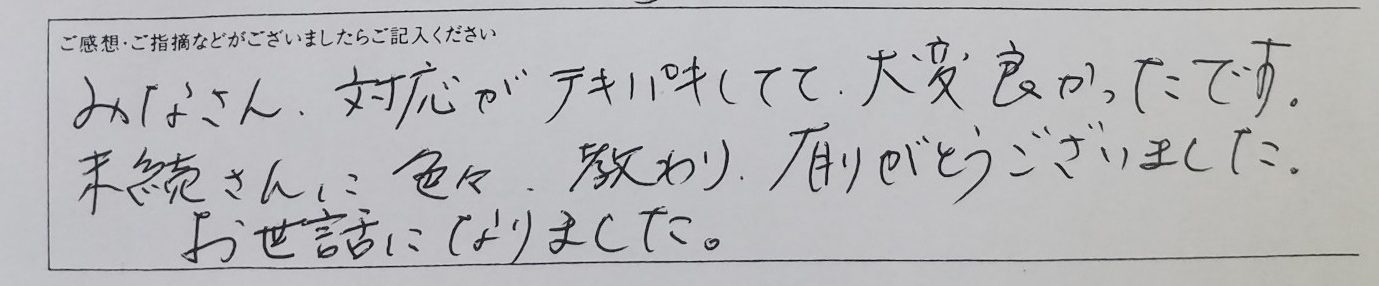 ご感想・ご指摘などがございましたらご記入ください
みなさん、対応がテキパキしてて、大変良かったです。
末続さんに色々、教わり、有りがとうございました。
お世話になりました。